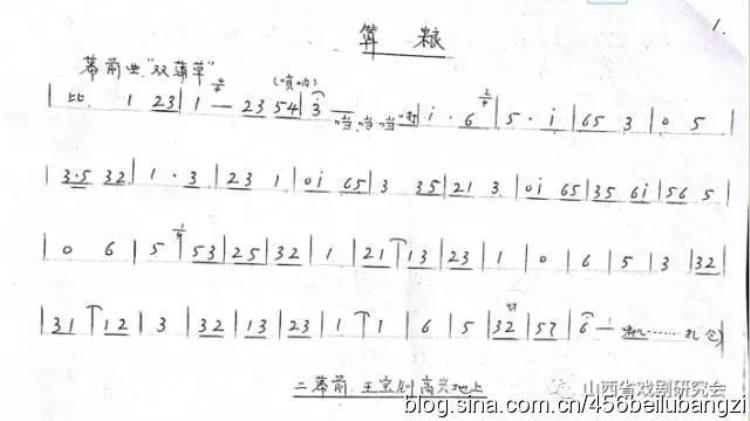 1.
算 粮
幕前曲"双蒲草"
(唢呐)
| 比 1 23 | 1 — 23 54 | 3 — 当.当.当 | i · 6 | 5 · i | 65 3 | 0 5 |
| 3·5 32 | 1 · 3 | 23 1 | 0i 65 | 3 35 | 21 3 | 0i 65 | 35 6i | 56 5 |
| 0 6 | 5 | 53 | 25 | 32 | 1 | 21 | 13 | 23 | 1 | 0 | 6 | 5 | 3 | 32 |
| 31 | 12 | 3 | 32 | 13 | 23 | 1 | 1 | 6 | 5 | 32 | 57 | 6 — …… 扎 仓)
二幕前 王宝钏高兴地上
山西省戏剧研究会
blog.sina.com.cn/456beilubangzi